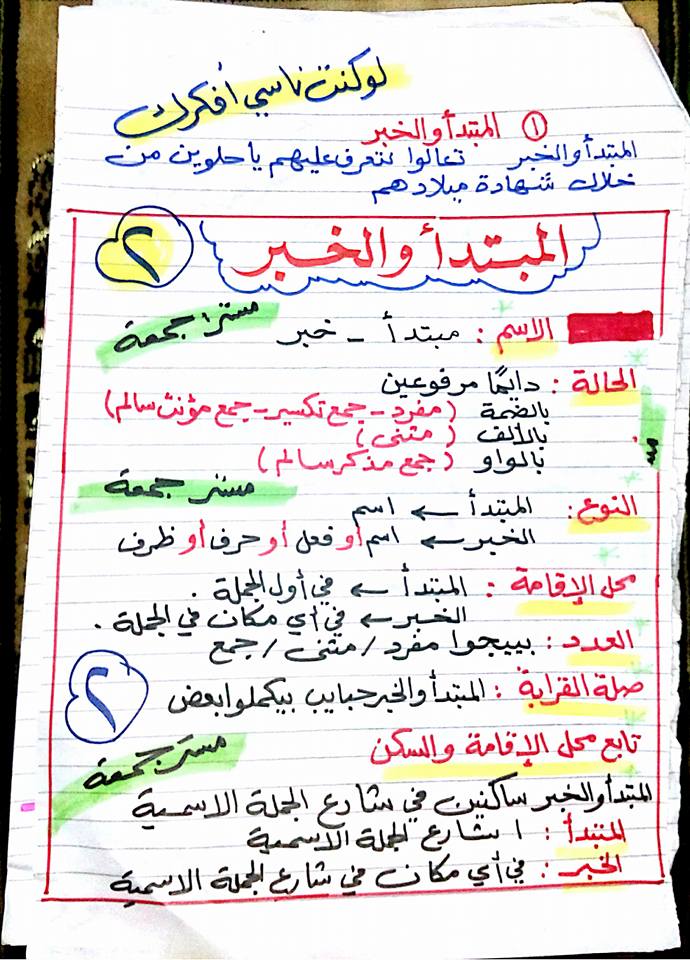 لو كنت ناسي أفكرك
١ المبتدأ والخبر
المبتدأ والخبر تعالوا نتعرف عليهم يا حلوين من
خلال شهادة ميلادهم
المبتدأ والخبر
٢
الاسم : مبتدأ - خبر
مستر جمعة
الحالة : دايمًا مرفوعين
بالضمة (مفرد - جمع تكسير - جمع مؤنث سالم)
بالألف (مثنى)
بالواو (جمع مذكر سالم)
مستر جمعة
النوع : المبتدأ ← اسم
الخبر ← اسم أو فعل أو حرف أو ظرف
محل الإقامة : المبتدأ ← في أول الجملة .
الخبر ← في أي مكان في الجملة .
العدد : بييجوا مفرد / مثنى / جمع
صلة القرابة : المبتدأ والخبر حبايب بيكملوا بعض
٢
تابع محل الإقامة والسكن
مستر جمعة
المبتدأ والخبر ساكنين في شارع الجملة الاسمية
المبتدأ : ١ شارع الجملة الاسمية
الخبر : في أي مكان في شارع الجملة الاسمية